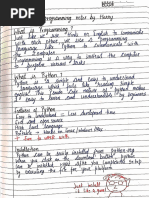 Programming notes by Harry
What is Programming?
Just like we use Hindi or English to communicate
with each other, we use a Programming
language like Python to communicate with
the Computer.
Programming is a way to instruct the Computer
to perform various tasks.
What is Python?
Python is a simple and easy to understand
language which feels like reading simple
English. This Pseudo code nature of Python
makes it easy to learn and understandable by beginners
Features of Python
Easy to understand = Less development time
Free and open source
High level language
Portable - works on Linux/Windows/Mac
+ Fun to work with
Installation
Python can be easily installed from python.org
When you click on the download button, python can
be installed right after you complete the setup
by executing the file for your platform.
Just install
it like a game